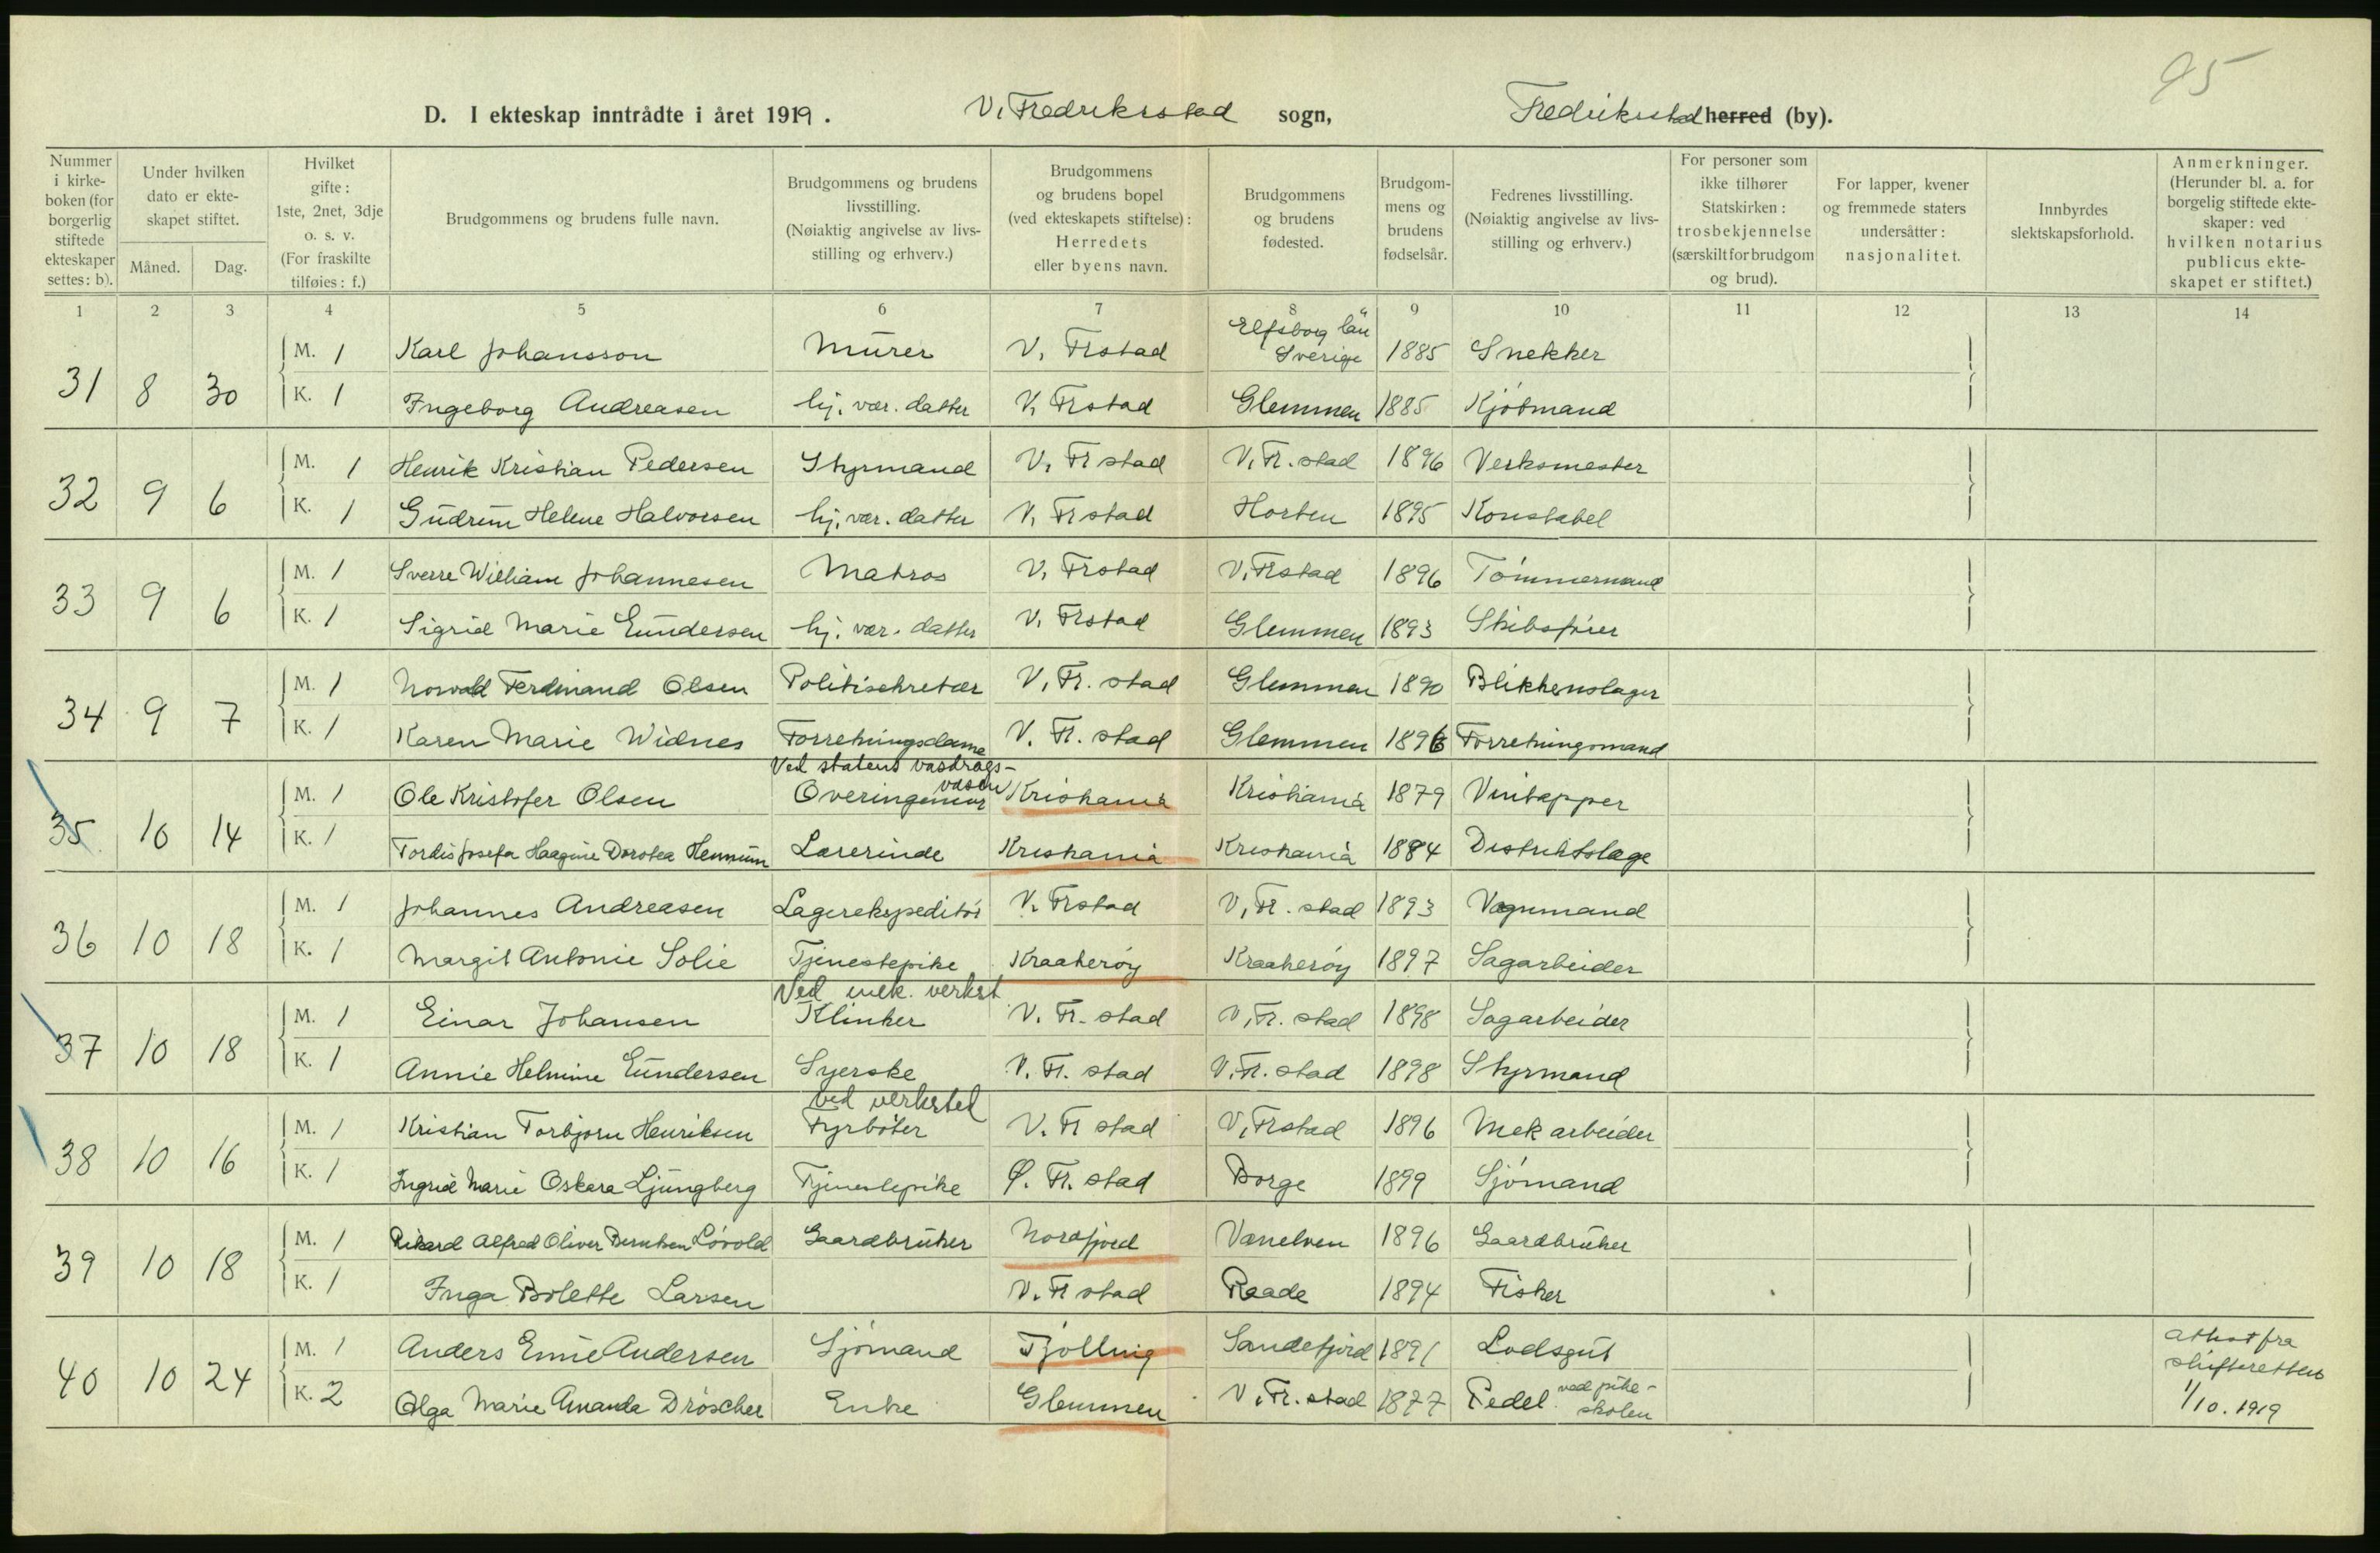 95
D. I ekteskap inntrådte i året 1919. V. Fredriksstad sogn, Fredriksstad herred (by).
Nummer i kirke-boken (for borgerlig stiftede ekteskaper settes: b).
Under hvilken dato er ekte-skapet stiftet.
Måned. Dag.
Hvilket gifte: 1ste, 2net, 3dje o. s. v. (For fraskilte tilføies: f.)
Brudgommens og brudens fulle navn.
Brudgommens og brudens livsstilling. (Nøiaktig angivelse av livs-stilling og erhverv.)
Brudgommens og brudens bopel (ved ekteskapets stiftelse): Herredets eller byens navn.
Brudgommens og brudens fødested.
Brudgom-mens og brudens fødselsår.
Fedrenes livsstilling. (Nøiaktig angivelse av livs-stilling og erhverv.)
For personer som ikke tilhører Statskirken: trosbekjennelse (særskilt for brudgom og brud).
For lapper, kvener og fremmede staters undersåtter: nasjonalitet.
Innbyrdes slektskapsforhold.
Anmerkninger. (Herunder bl. a. for borgelig stiftede ekte-skaper: ved hvilken notarius publicus ekte-skapet er stiftet.)
1 2 3 4 5 6 7 8 9 10 11 12 13 14
31 8 30
M. 1 Karl Johansson Murer V. Frstad Elfsborg län Sverige 1885 Snekker
K. 1 Ingeborg Andreasen hj. vær. datter V. Frstad Glemmen 1885 Kjöbmand
32 9 6
M. 1 Henrik Kristian Pedersen Styrmand V. Fr stad V. Fr. stad 1896 Verksmester
K. 1 Gudrun Helene Halvorsen hj. vær. datter V. Frstad Horten 1895 Konstabel
33 9 6
M. 1 Sverre William Johannesen Matros V. Frstad V. Frstad 1896 Tömmermand
K. 1 Sigrid Marie Gundersen hj. vær. datter V. Frstad Glemmen 1893 Skibsfører
34 9 7
M. 1 Norvald Ferdinand Olsen Politisekretær V. Fr. stad Glemmen 1890 Blikkenslager
K. 1 Karen Marie Widnes Forretningsdame V. Fr. stad Glemmen 1896 Forretningsmand
35 10 14
Ved statens vasdrags-væsen
M. 1 Ole Kristofer Olsen Overingeniør Kristiania Kristiania 1879 Vintapper
K. 1 Tordis Josefa Haagine Dorotea Hennum Lærerinde Kristiania Kristiania 1884 Distriktslæge
36 10 18
M. 1 Johannes Andreasen Lagerekspeditör V. Frstad V. Fr. stad 1893 Vognmand
K. 1 Margit Antonie Solie Tjenestepike Kraakeröy Kraakeröy 1897 Sagarbeider
37 10 18
Ved mek. verkst
M. 1 Einar Johansen Klinker V. Fr. stad V. Fr. stad 1898 Sagarbeider
K. 1 Annie Helmine Gundersen Syerske V. Fr. stad V. Fr. stad 1898 Styrmand
38 10 16
ved verksted
M. 1 Kristian Torbjørn Henriksen Fyrböter V. Fr stad V. Frstad 1896 Mek arbeider
K. 1 Ingrid Marie Oskara Ljungberg Tjenestepike Ø. Fr. stad Borge 1899 Sjömand
39 10 18
M. 1 Rikard Alfred Oliver Berntsen Lövold Gaardbruker Nordfjord Vanelven 1896 Gaardbruker
K. 1 Inga Bolette Larsen V. Fr stad Raade 1894 Fisker
40 10 24
M. 1 Anders Emil Andersen Sjömand Tjölling Sandefjord 1891 Lodsgut
K. 2 Olga Marie Amanda Dröscher Enke Glemmen V. Fr. stad 1877 Pedel ved pike-skolen
attest fra
skifteretten
1/10. 1919